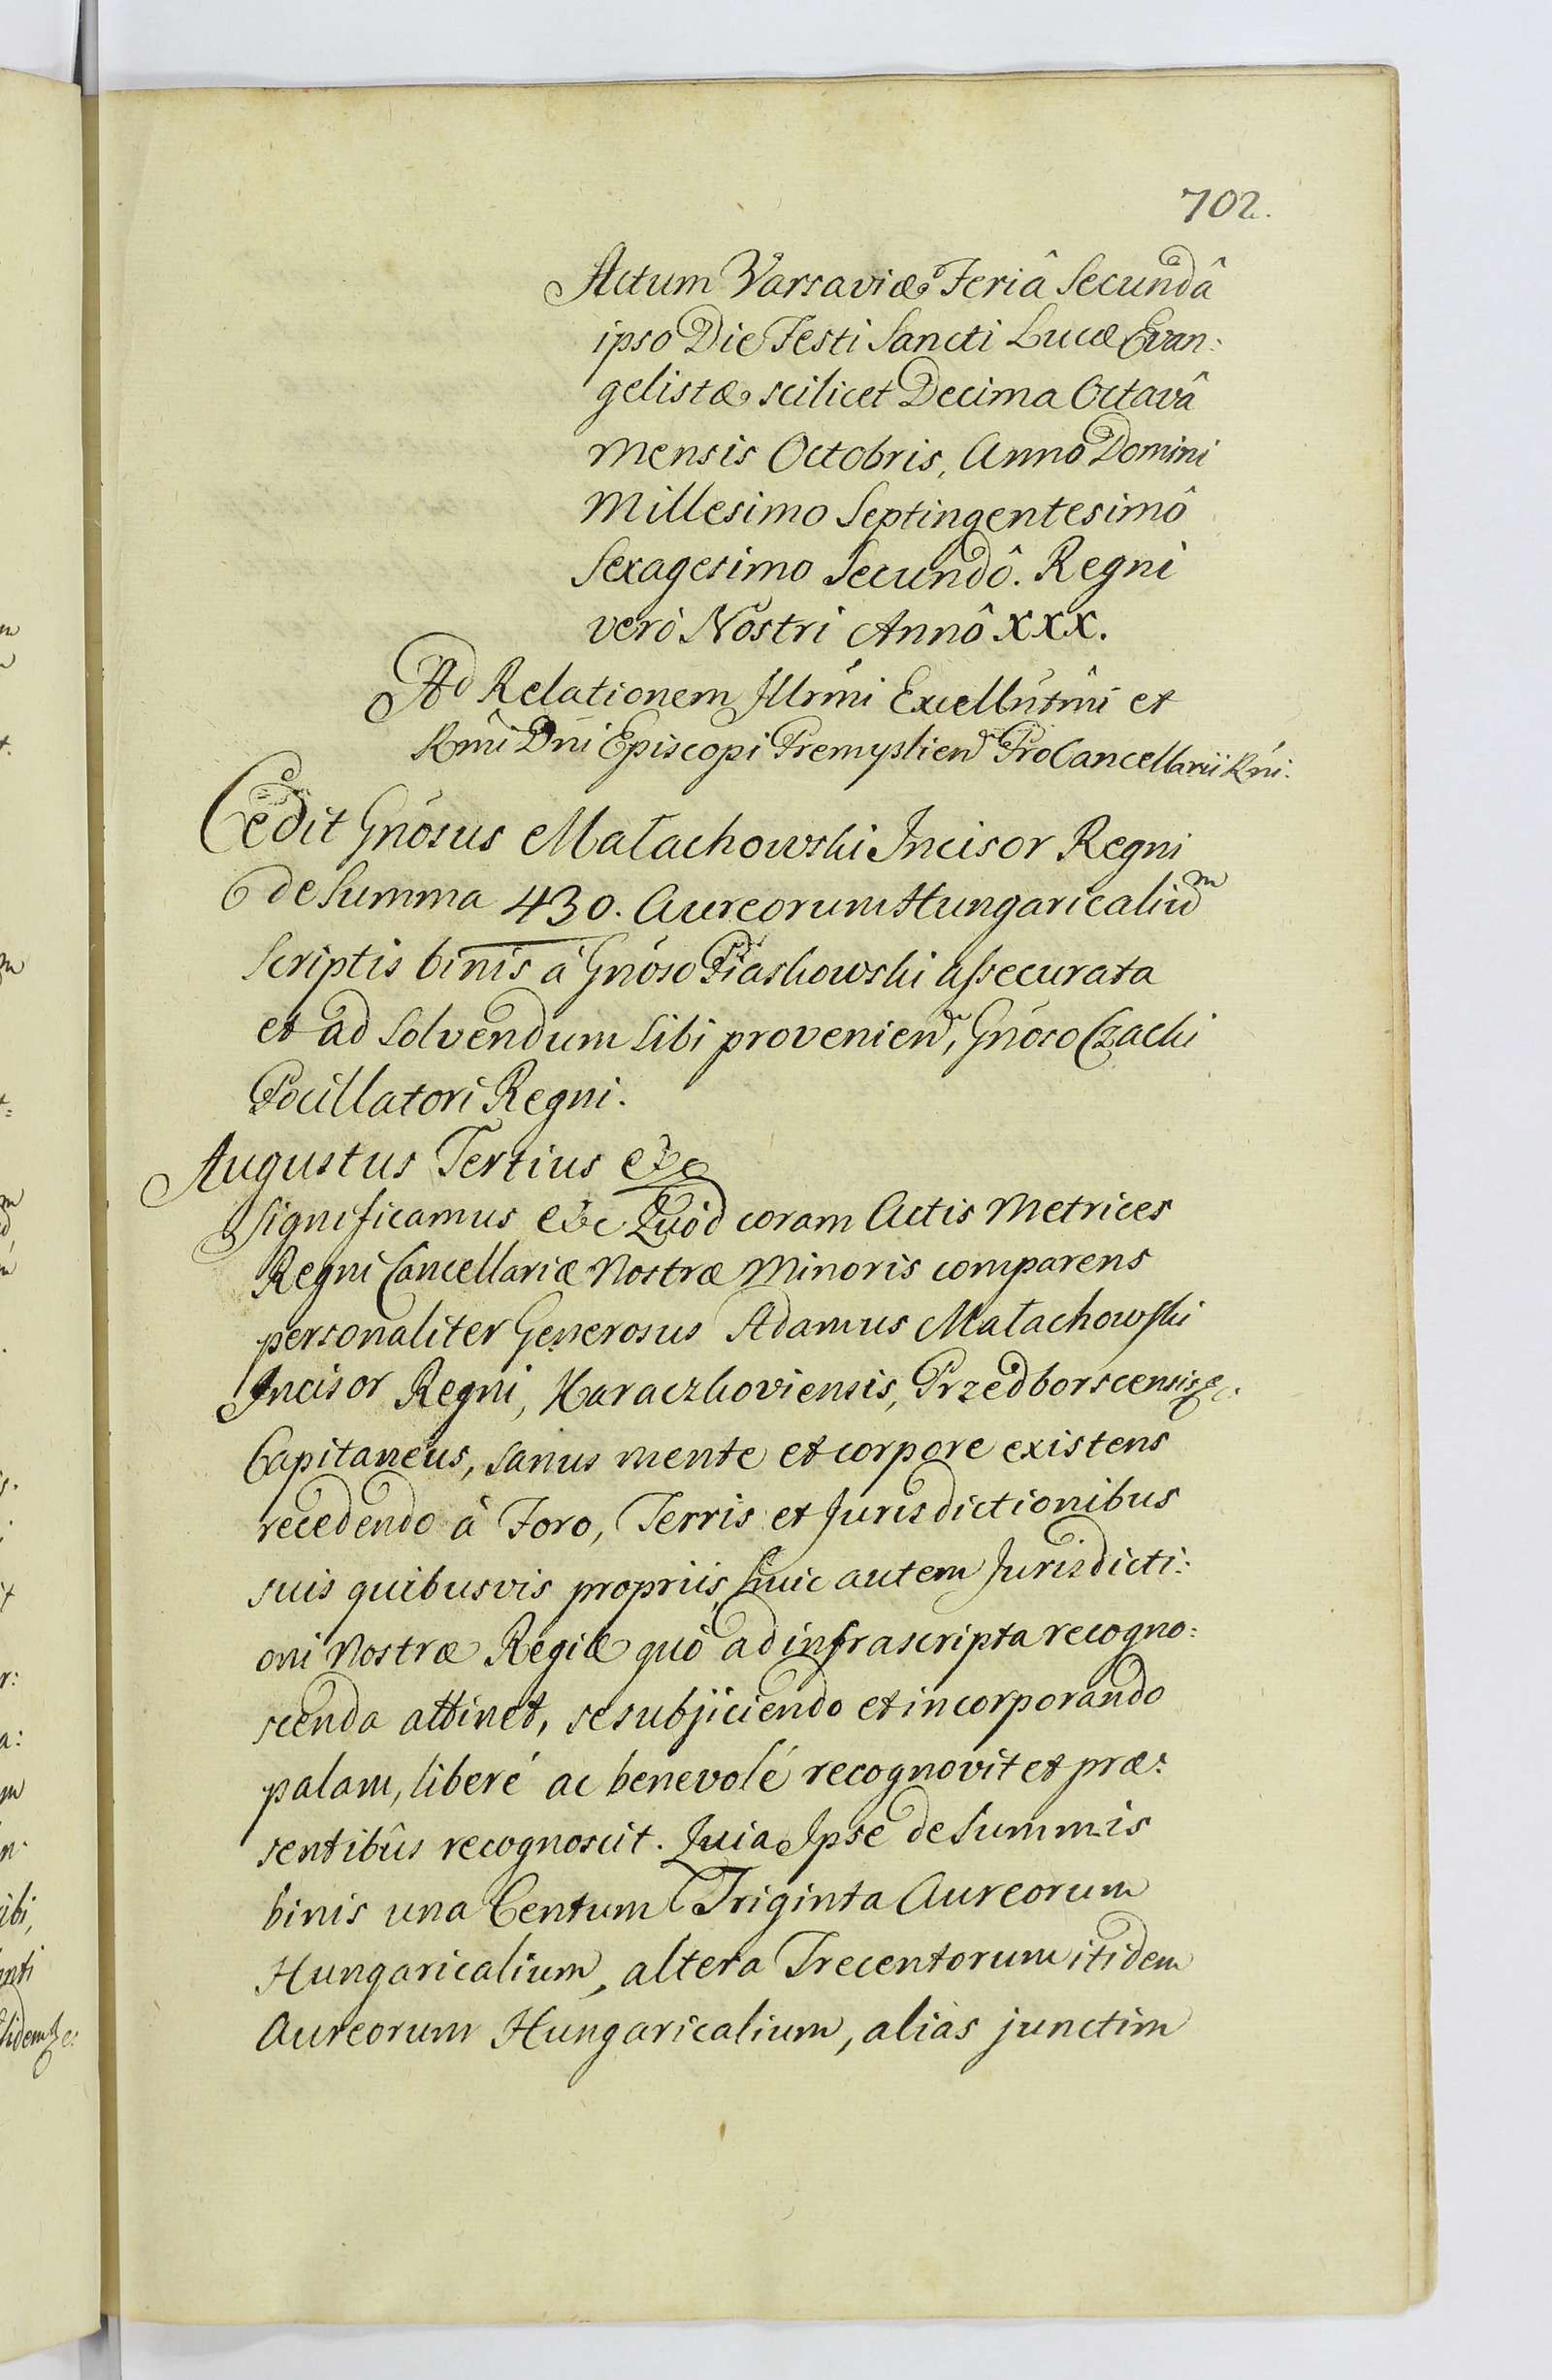 702.
Actum Varsaviæ Feriâ Secundâ
ipso Die Festi Sancti Lucæ Evan:
gelistæ scilicet Decima Octavâ
Mensis Octobris, Anno Domini
Millesimo Septingentesimô
Sexagesimo Secundô. Regni
verò Nostri Annô XXX.
Ad Relationem Illrmi Excellntmi et
Rmi Dni Episcopi Premyslien ProCancellarii Rni.
Cedit Gnosus Małachowski Incisor Regni
de Summa 430. Aureorum Hungaricaliūm
Scriptis binis à Gnoso Piaskowski assecurata
et ad solvendum sibi provenien, Gnoso Czacki
Pocillatori Regni.
Augustus Tertius etc
Significamus etc Quod coram Actis Metrices
Regni Cancellariæ Nostræ Minoris comparens
personaliter Generosus Adamus Małachowski
Incisor Regni, Karaczkoviensis, Przedborscensis etc.
Capitaneus, sanus mente et corpore existens
recedendo à Foro, Terris et Jurisdictionibus
suis quibusvis propriis, huic autem Jurisdicti:
oni Nostræ Regiæ quò ad infrascripta recogno:
scenda attinet, se subjiciendo et incorporando
palam, liberé ac benevolé recognovit et præ:
sentibûs recognoscit. Quia Ipse de Summis
binis una Centum Triginta Aureorum
Hungaricalium, altera Trecentorum itidem
Aureorum Hungaricalium, aliàs junctim